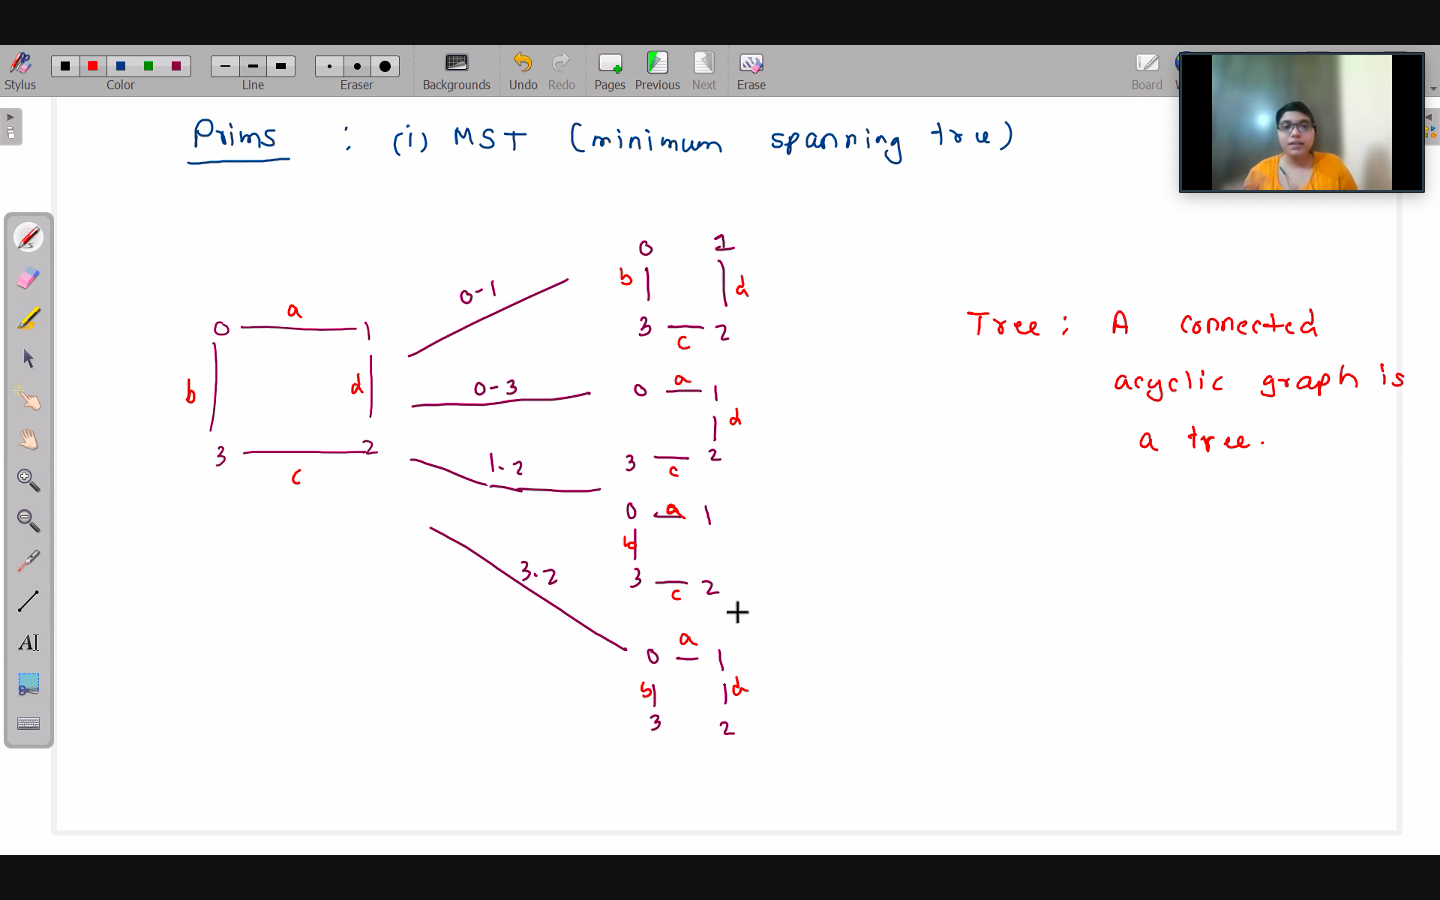 Stylus
Color
Line
Eraser
Backgrounds
Undo
Redo
Pages
Previous
Next
Erase
Board
Prims : (i) MST (minimum spanning tree)
0 a 1
b d
3 c 2
0-1
0 1
b d
3 c 2
0-3
0 a 1
d
3 c 2
1-2
0 a 1
b
3 c 2
3-2
0 a 1
b d
3 2
Tree : A connected
acyclic graph is
a tree.
AI